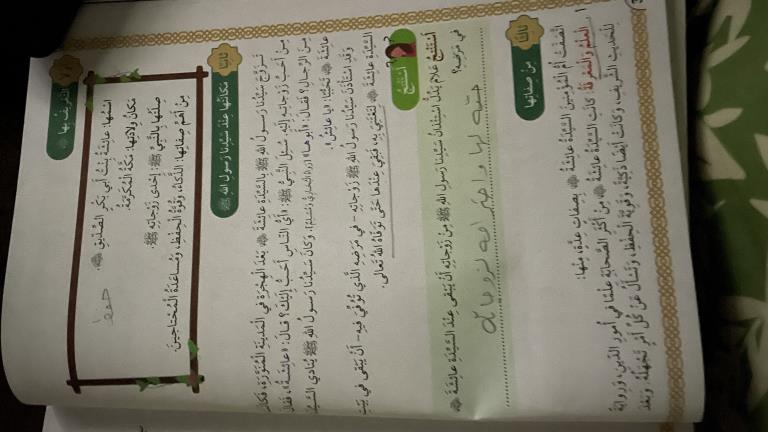 التعريف بها
اسْمُها: عائِشَةُ بِنْتُ أَبي بَكْرٍ الصِّدّيقِ
مَكانُ وِلادَتِها: مَكَّةُ الْمُكَرَّمَةُ.
صِلَتُها بِالنَّبِيِّ ﷺ: إِحْدى زَوْجاتِهِ ﷺ.
مِنْ أَهَمِّ صِفاتِها: الذَّكاءُ، وَقُوَّةُ الْحِفْظِ، وَمُساعَدَةُ الْمُحْتاجينَ.
حفظ
ثانيًا
مَكانَتُها عِنْدَ سَيِّدِنا رَسولِ اللهِ ﷺ
تَزَوَّجَ سَيِّدُنا رَسولُ اللهِ ﷺ بِالسَّيِّدَةِ عائِشَةَ بَعْدَ الْهِجْرَةِ في الْمَدينَةِ الْمُنَوَّرَةِ، فَكانَتْ
مِنْ أَحَبِّ زَوْجاتِهِ إِلَيْهِ. سُئِلَ النَّبِيُّ ﷺ: «أَيُّ النّاسِ أَحَبُّ إِلَيْكَ؟ قالَ: «عائِشَةُ»، فَقالَ
مِنَ الرِّجالِ؟ فَقالَ: «أَبوها» [رَواهُ الْبُخارِيُّ وَمُسْلِمٌ]. وَكانَ سَيِّدُنا رَسولُ اللهِ ﷺ يُنادي السَّيِّدَةَ
عائِشَةَ تَحَبُّبًا: «يا عائِشُ».
وَقَدِ اسْتَأْذَنَ سَيِّدُنا رَسولُ اللهِ ﷺ زَوْجاتِهِ - في مَرَضِهِ الَّذي تُوُفِّيَ فيهِ - أَنْ يَبْقى في بَيْتِ
السَّيِّدَةِ عائِشَةَ لِتَعْتَنِيَ بِهِ، فَبَقِيَ عِنْدَها حَتّى تَوَفّاهُ اللهُ تَعالى.
أَسْتَنْتِجُ
أَسْتَنْتِجُ عَلامَ يَدُلُّ اسْتِئْذانُ سَيِّدِنا رَسولِ اللهِ ﷺ مِنْ زَوْجاتِهِ أَنْ يَبْقى عِنْدَ السَّيِّدَةِ عائِشَةَ
في مَرَضِهِ؟
حبه لها واحترامه لزوجاته
ثالثًا
مِنْ صِفاتِها
اتَّصَفَتْ أُمُّ الْمُؤْمِنينَ السَّيِّدَةُ عائِشَةُ بِصِفاتٍ عِدَّةٍ، مِنْها:
الْعِلْمُ وَالْمَعْرِفَةُ: كانَتِ السَّيِّدَةُ عائِشَةُ مِنْ أَكْثَرِ الصَّحابَةِ عِلْمًا في أُمورِ الدّينِ، وَرِوايَةً
لِلْحَديثِ الشَّريفِ، وَكانَتْ أَيْضًا ذَكِيَّةً، وَقَوِيَّةَ الْحِفْظِ، وَتَسْأَلُ عَنْ كُلِّ أَمْرٍ تَجْهَلُهُ. وَتُعَدُّ